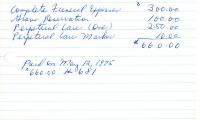 Complete Funeral Expense $ 300.00
Grave Reservation 100.00
Perpetual Care (One) 250.00
Perpetual Care Marker 10.00
$660.00
Paid on May 12, 1975
$660.00 # 681